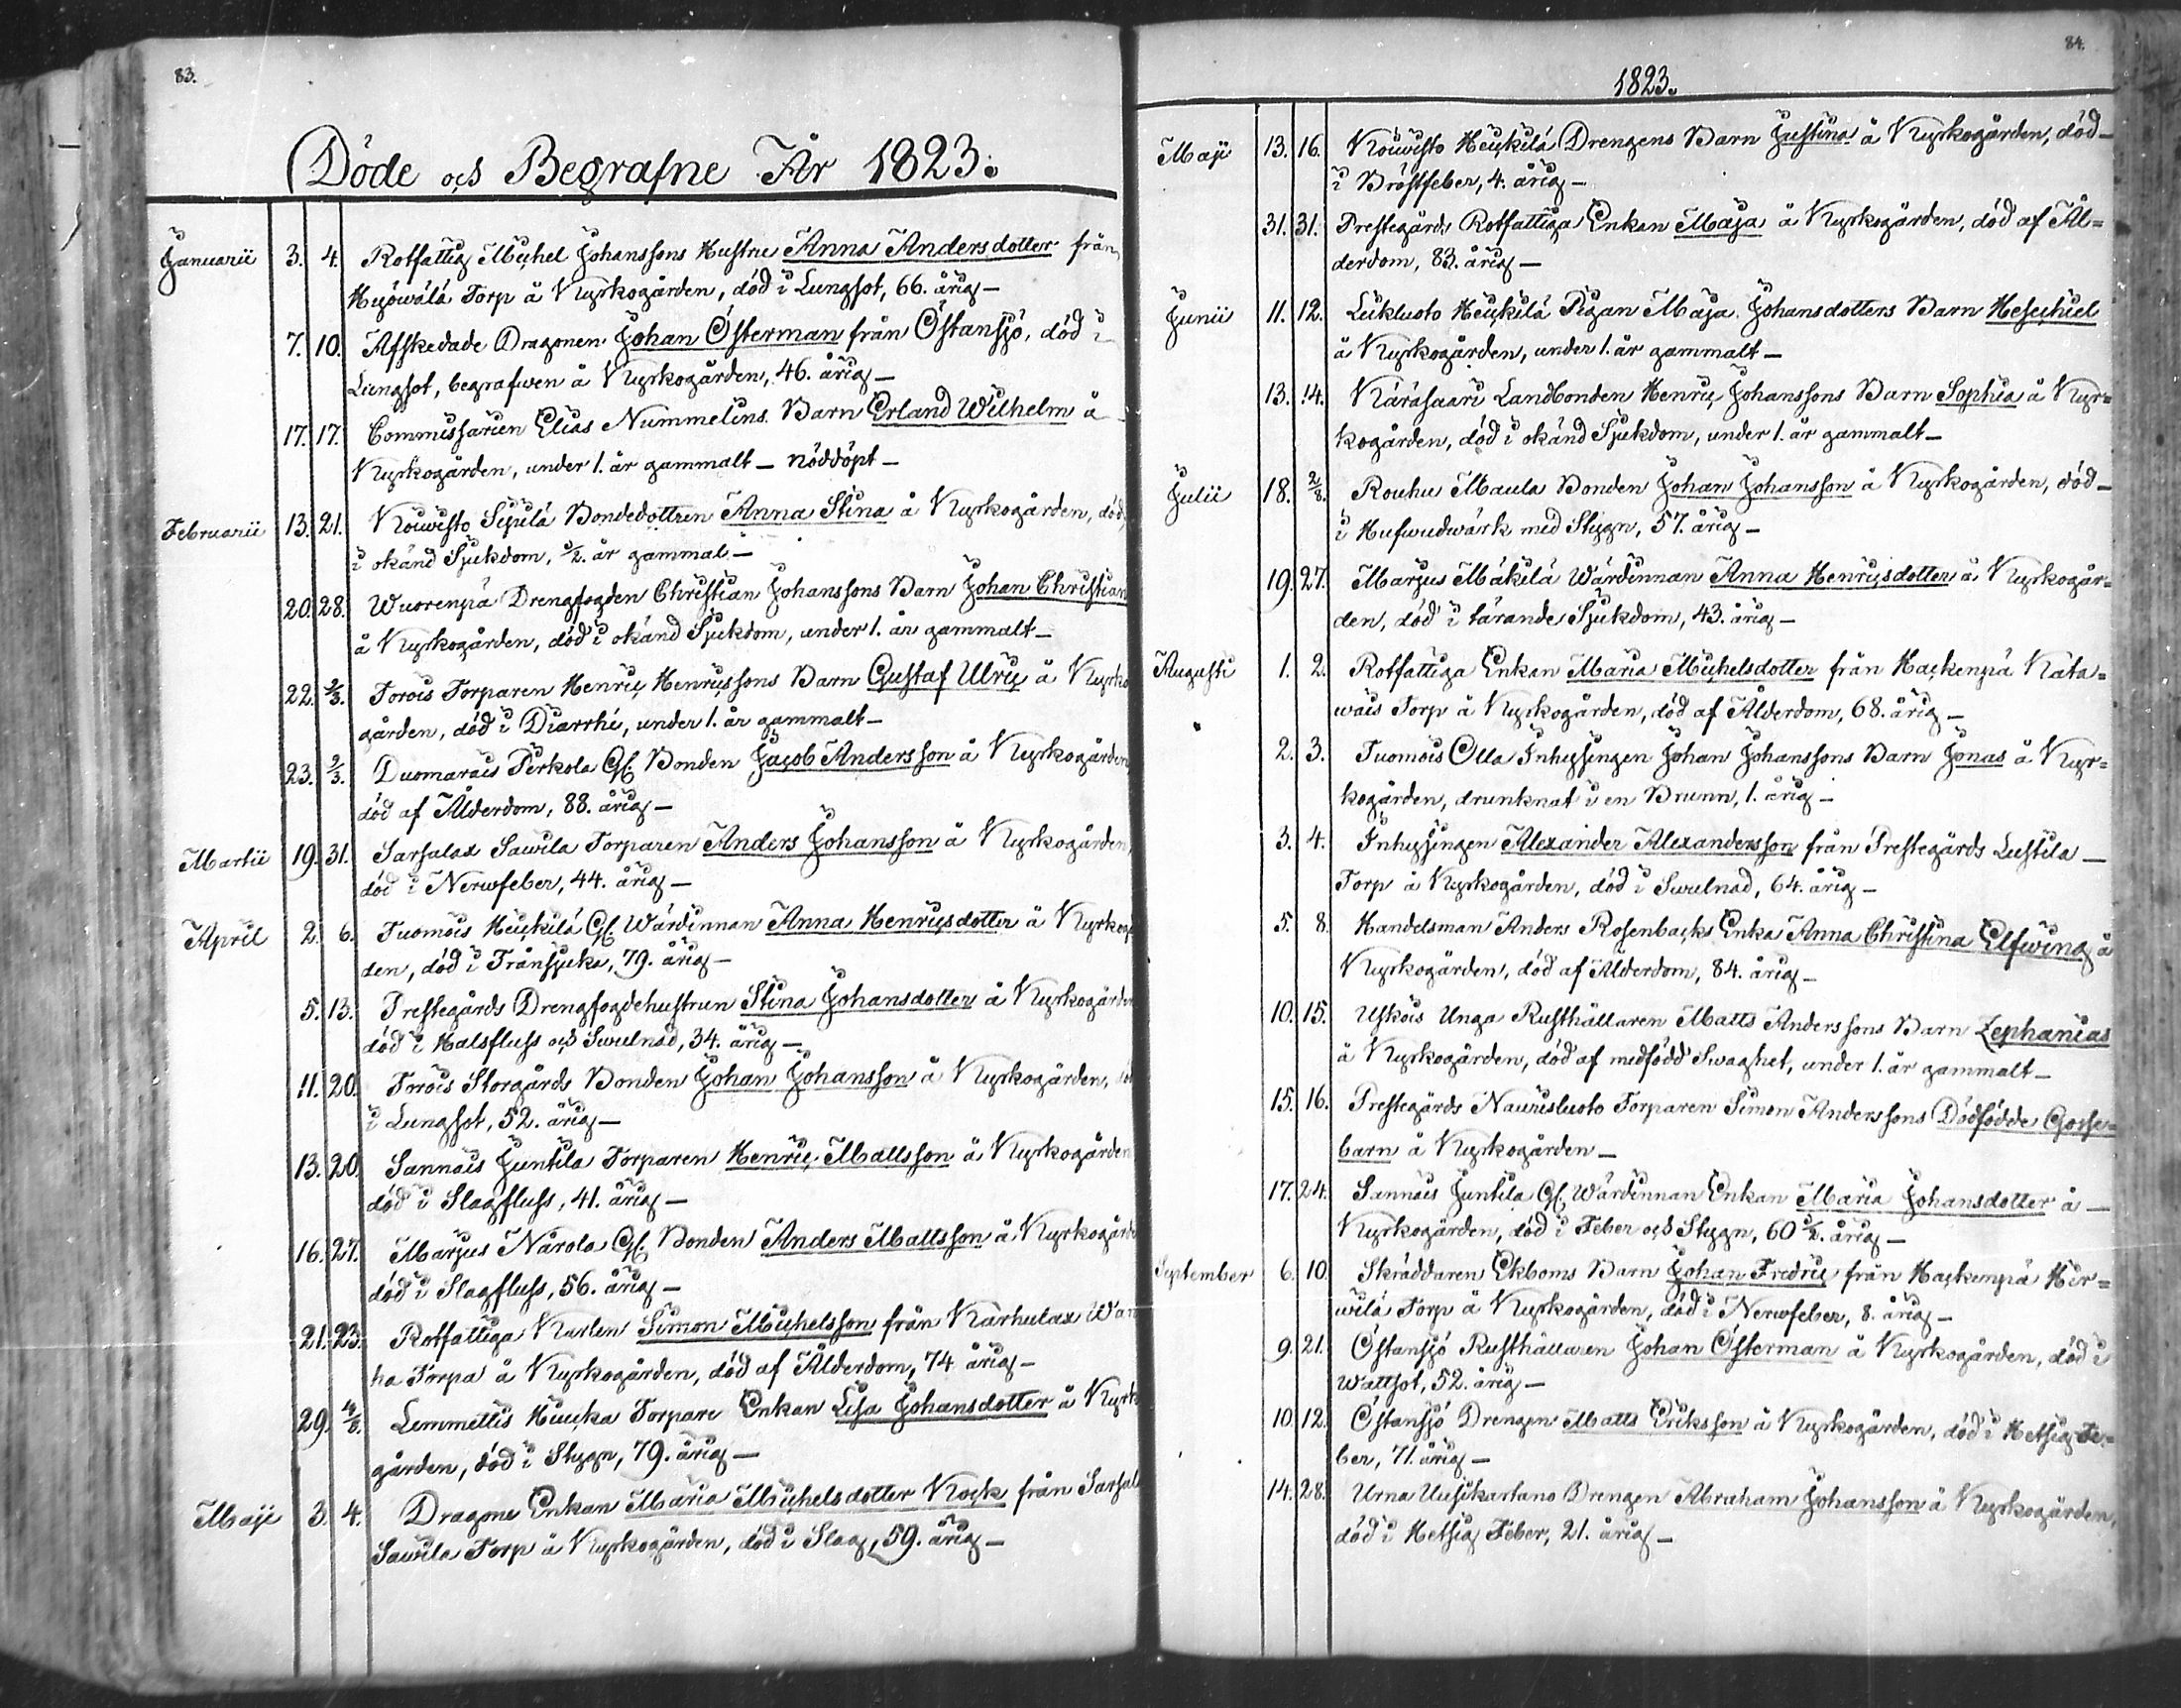 83.
Döde och Begrafne År 1823.
Januarii 3. 4. Rotfattig Michel Johanssons Hustru Anna Andersdotter från
Hyöwälä Torp å Kyrkogården, död i Lungsot, 66. årig —
7. 10. Afskedade Dragonen Johan Österman från Östansjö, död i
Lungsot, begrafwen å Kyrkogården, 46. årig —
17. 17. Commissarien Elias Nummelins Barn Erland Wilhelm å
Kyrkogården, under 1. år gammalt — nöddöpt —
Februarii 13. 21. Kouwisto Sipilä Bondedottren Anna Stina å Kyrkogården, död
i okänd Sjukdom, ½. år gammal —
20. 28. Wuorenpä Drengfogden Christian Johanssons Barn Johan Christian
å Kyrkogården, död i okänd Sjukdom, under 1. år gammalt —
22. 2/3. Torois Torparen Henric Henricssons Barn Gustaf Ulric å Kyrko
gården, död i Diarrhé, under 1. år gammalt —
23. 2/3. Duomarais Perkola Gl. Bonden Jacob Andersson å Kyrkogården
död af Ålderdom, 88. årig —
Martii 19. 31. Sarsalax Sawila Torparen Anders Johansson å Kyrkogården,
död i Nervfeber, 44. årig —
April 2. 6. Tuomois Heickilä Gl. Wärdinnan Anna Henricsdotter å Kyrkog
den, död i Trånsjuka, 79. årig —
5. 13. Prestegårds Drengfogdehustrun Stina Johansdotter å Kyrkogården
död i Halsfluss och Swulnad, 34. årig —
11. 20. Storgårds Bonden Johan Johansson å Kyrkogården, död
i Lungsot, 52. årig —
13. 20. Sannais Juntila Torparen Henric Mattsson å Kyrkogården
död i Slagfluss, 41. årig —
16. 27. Marjus Närola Gl. Bonden Anders Mattsson å Kyrkogården
död i Slagfluss, 56. årig —
21. 23. Rotfattiga Karlen Simon Michelsson från Karhulax Wan
ha Torpa å Kyrkogården, död af Ålderdom, 74 årig —
29. 4/8. Lemmettis Torpare Enkan Lisa Johansdotter å Kyrk
gården, död i Stygn, 79. årig —
Maji 3. 4. Dragone Enkan Maria Michelsdotter Kock från Sarsal
Sawila Torp å Kyrkogården, död i Slag, 59. årig —
84.
1823.
Maji 13. 16. Kouwisto Heickilä Drengens Barn Justina å Kyrkogården, död —
i Bröstfeber, 4. årig —
31. 31. Prestegårds Rotfattiga Enkan Maja å Kyrkogården, död af Ål=
derdom, 83. årig —
Junii 11. 12. Lukluoto Heickilä Pigan Maja Johansdotters Barn Hesechiel
å Kyrkogården, under 1. år gammalt —
13. 14. Käräsaari Landbonden Henric Johanssons Barn Sophia å Kyr=
kogården, död i okänd Sjukdom, under 1. år gammalt —
Julii 18. 2/8. Rouhu Maula Bonden Johan Johansson å Kyrkogården, död —
i Hufwudwärk med Stygn, 57. årig —
19. 27. Marjus Mäkilä Wärdinnan Anna Henricsdotter å Kyrkogår=
den, död i tärande Sjukdom, 43. årig —
Augusti 1. 2. Rotfattiga Enkan Maria Michelsdotter från Hackenpä Kata=
wais Torp å Kyrkogården, död af Ålderdom, 68. årig —
2. 3. Tuomois Olla Inhysingen Johan Johanssons Barn Jonas å Kyr=
kogården, drunknat i en Brunn, 1. årig —
3. 4. Inhysingen Alexander Alexandersson från Prestegårds Lustila —
Torp å Kyrkogården, död i Swulnad, 64. årig —
5. 8. Handelsman Anders Rosenbacks Enka Anna Christina Elfwing å
Kyrkogården, död af Ålderdom, 84. årig —
10. 15. Uskois Unga Rusthållaren Matts Anderssons Barn Zephanias
å Kyrkogården, död af medfödd Swaghet, under 1. år gammalt —
15. 16. Prestegårds Naurisluoto Torparen Simon Anderssons Dödfödde Gosse=
barn å Kyrkogården —
17. 24. Sannais Juntila Gl. Wärdinnan Enkan Maria Johansdotter å —
Kyrkogården, död i Feber och Stygn, 60 ½. årig —
September 6. 10. Skräddaren Ekboms Barn Johan Fredric från Hackenpä Hir=
wilä Torp å Kyrkogården, död i Nervfeber, 8. årig —
9. 21. Östansjö Rusthållaren Johan Österman å Kyrkogården, död i
Wattsot, 52. årig —
10. 12. Östansjö Drengen Matts Eriksson å Kyrkogården, död i Hetsig Fe=
ber, 71. årig —
14. 28. Urna Uusikartano Drengen Abraham Johansson å Kyrkogården,
död i Hetsig Feber, 21. årig —